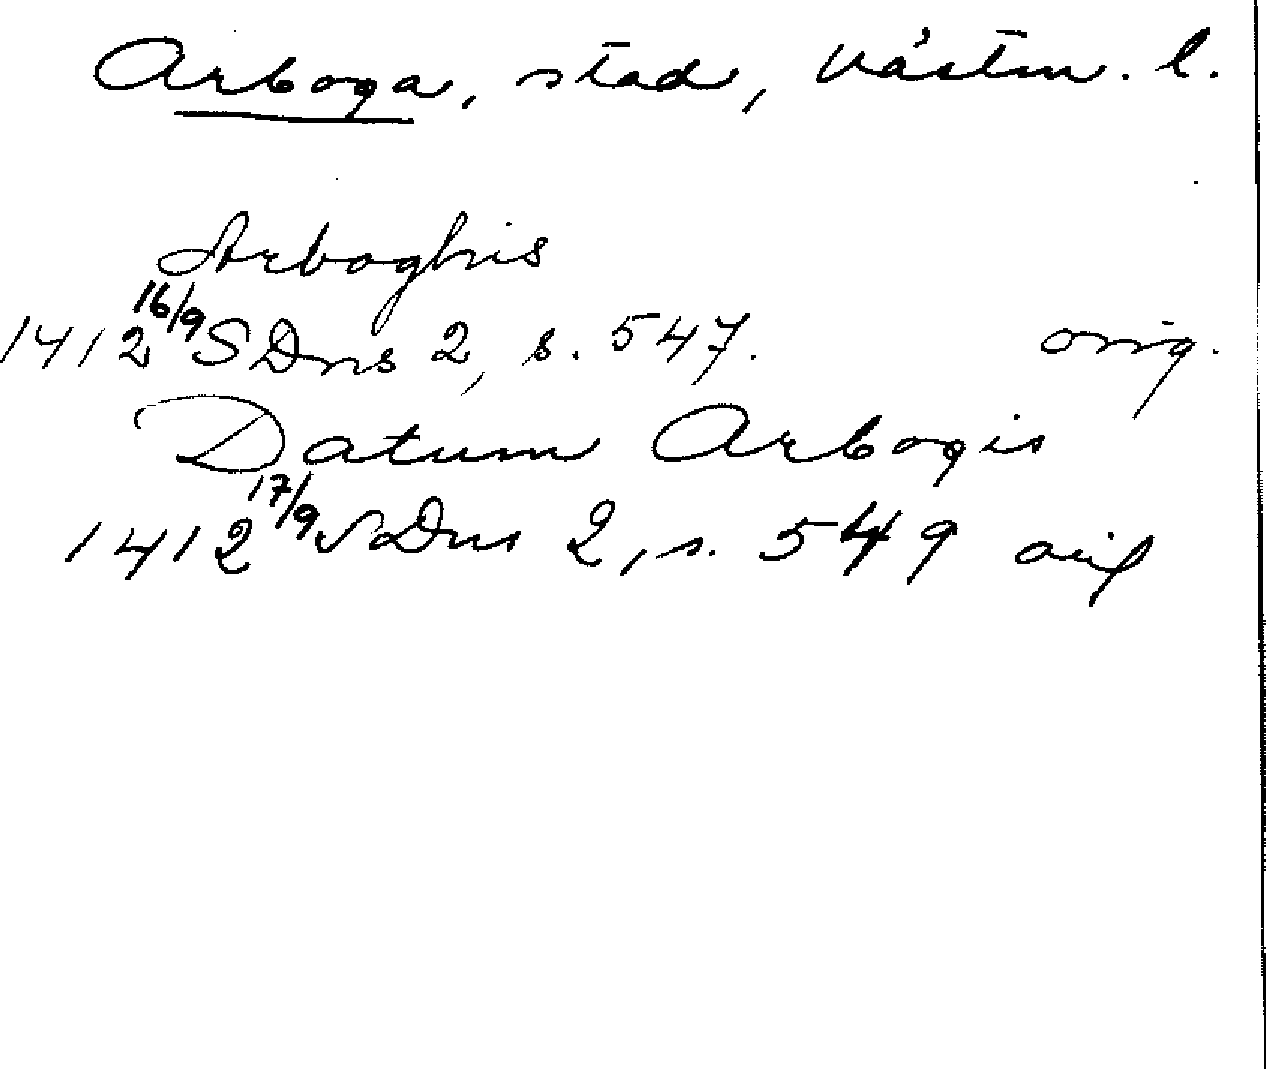 Arboga, stad, Västm. l.
Arboghis
1412 16/9 SDns 2, s. 547. orig.
Datum Arbogis
1412 17/9 SDns 2, s. 549 orig